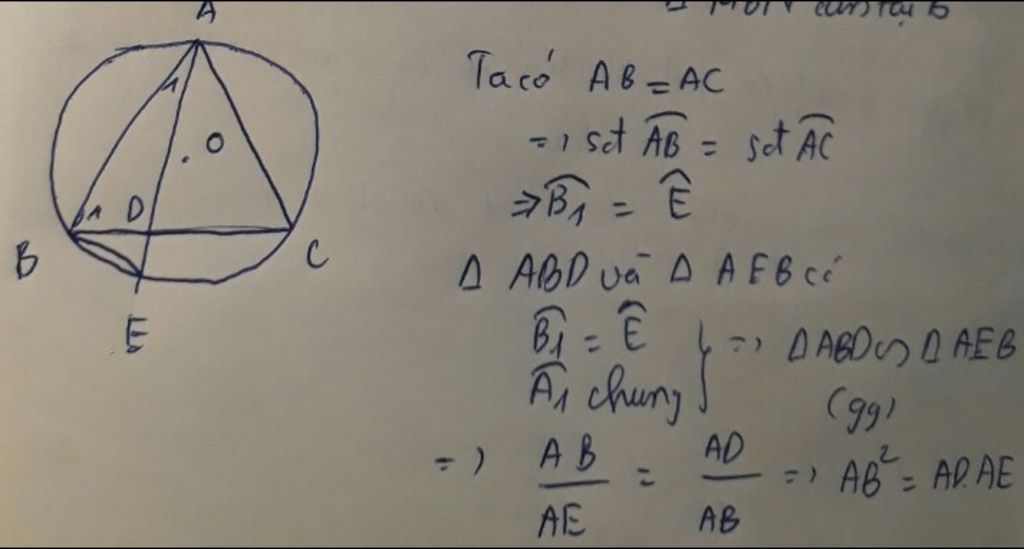 A
1
O
1 D
B
C
E
Ta có AB = AC
=> sđt AB = sđt AC
=> B1 = Ê
Δ ABD và Δ AEB có
B1 = Ê
A1 chung
=> ΔABD ∽ ΔAEB
(gg)
=> AB/AE = AD/AB => AB² = AD.AE